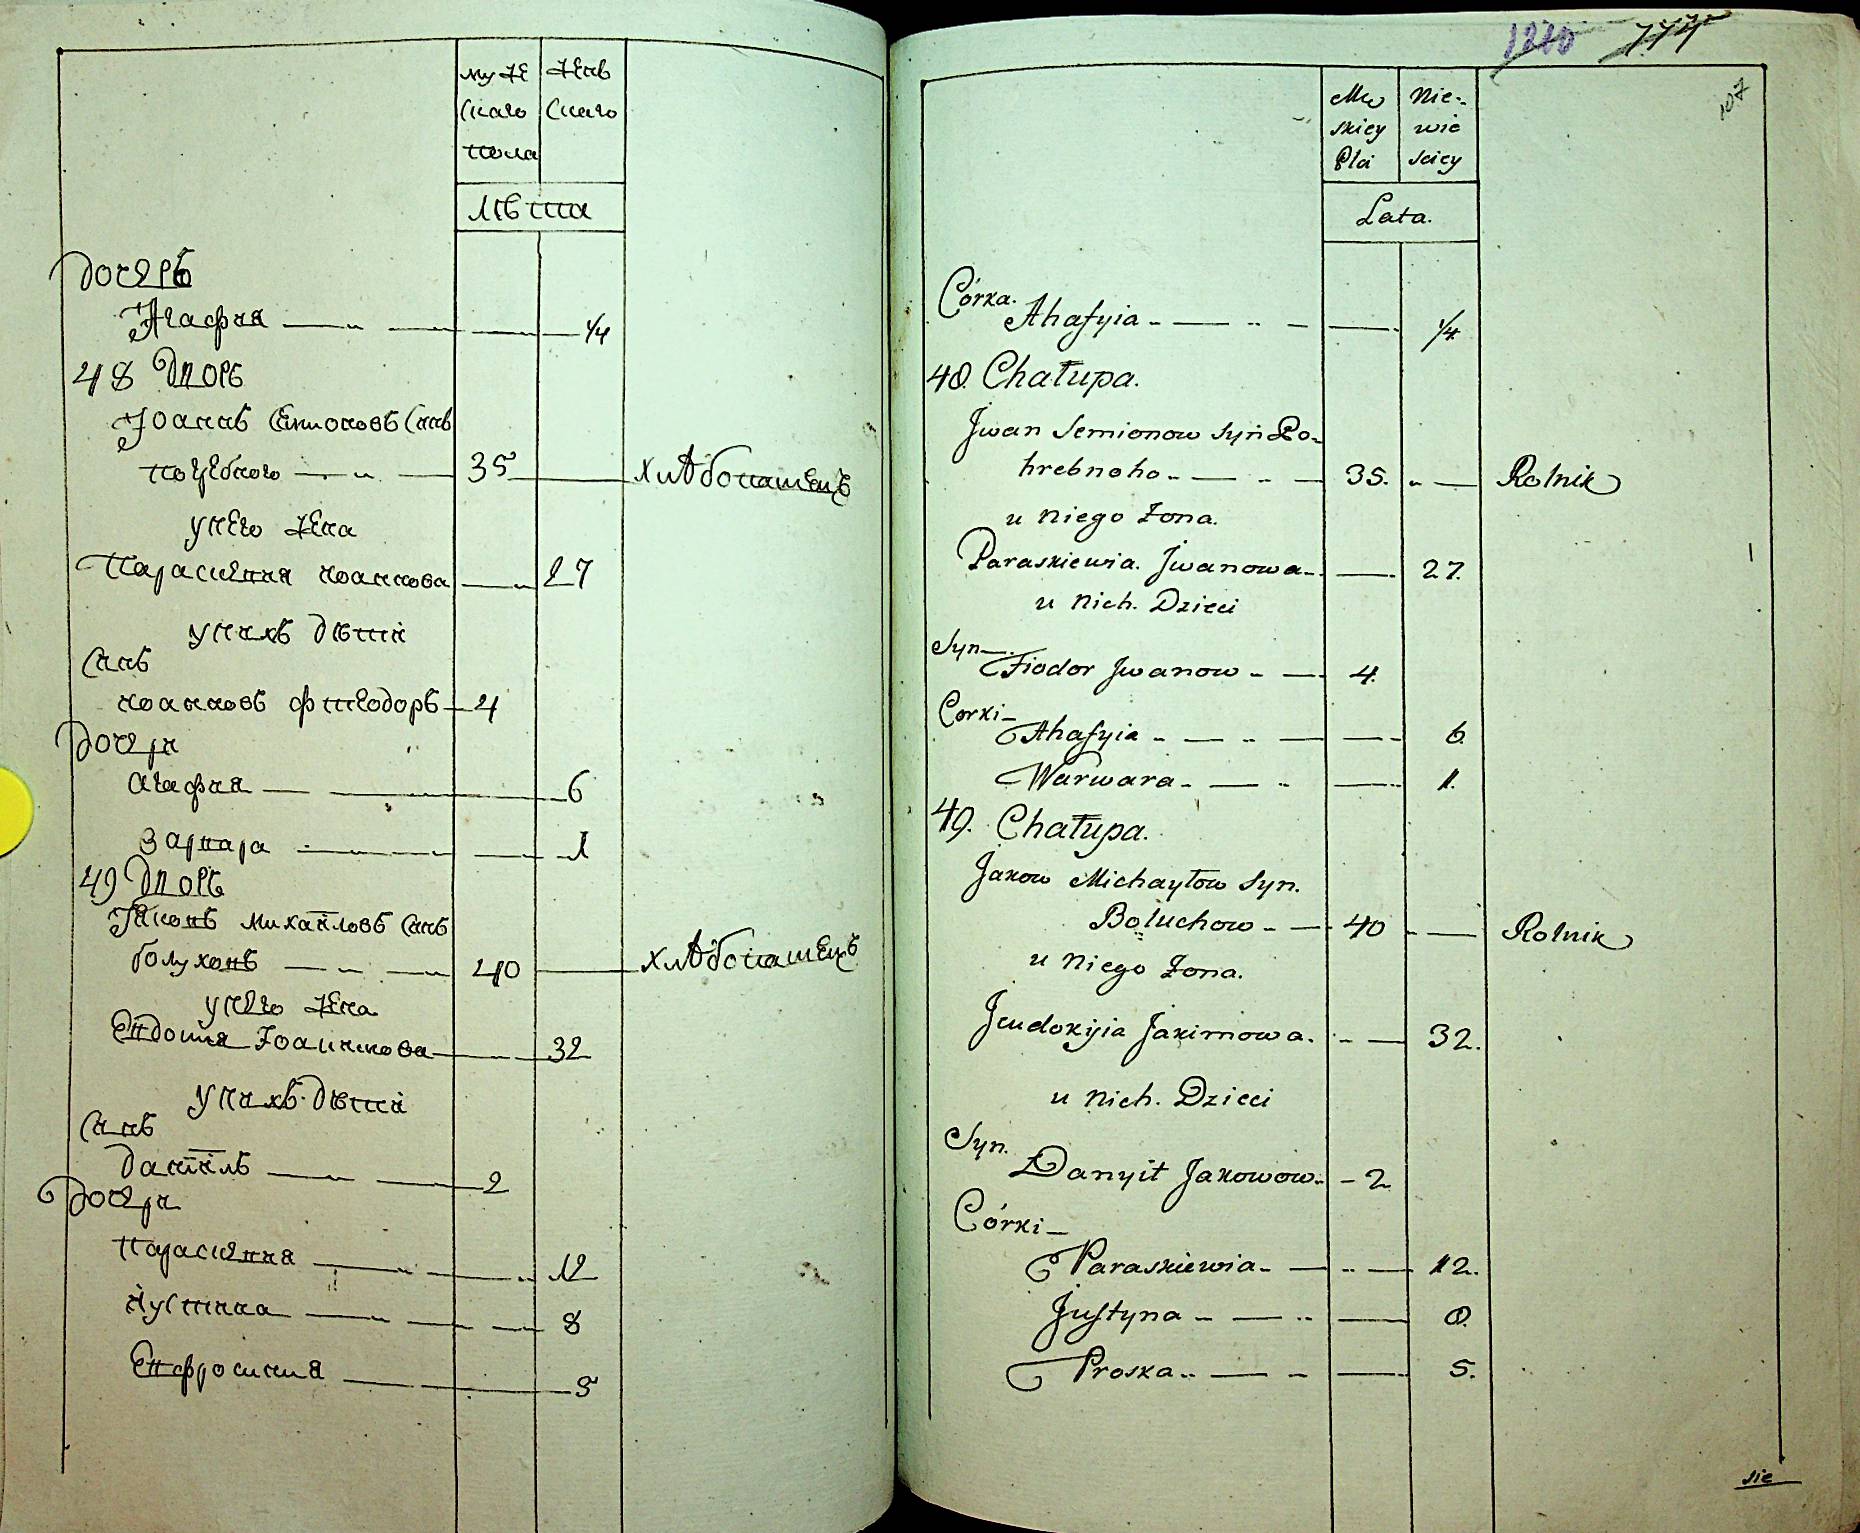 муже
скаго
пола
женъ
скаго
Лѣта
Дочерь
Агафия 1/4
48 Дворъ
Іоаннъ Симоновъ Снъ
погребного 35 хлѣбопашецъ
унего жена
Параскевия иоаннова 27
унихъ дѣти
Снъ
иоанновъ фтеодоръ 4
Дочери
агафия 6
варвара 1
49 Дворъ
Іаковъ михайловъ снъ
болуховъ 40 хлѣбопашецъ
унего жена
Евдокия Іоакимова 32
унихъ дѣти
Снъ
Даниилъ 2
Дочери
параскевия 12
иустина 8
Евфросиния 5
1210 774
107
Mę
skiey
Płci
Nie-
wie
sciey
Lata.
Córka.
Ahafyia 1/4
48. Chałupa.
Jwan Semionow Syn Po-
hrebnoho 35. Rolnik
u Niego Żona.
Paraskiewia. Jwanowa 27.
u Nich. Dzieci
Syn
Fiodor Jwanow 4.
Corki
Ahafyia 6.
Warwara 1.
49. Chałupa.
Jakow Michayłow Syn.
Boluchow 40 Rolnik
u Niego Żona.
Jeudokyia Jakimowa. 32.
u Nich. Dzieci
Syn.
Danyił Jakowow 2
Córki
Paraskiewia 12.
Justyna 8.
Proska 5.
sie